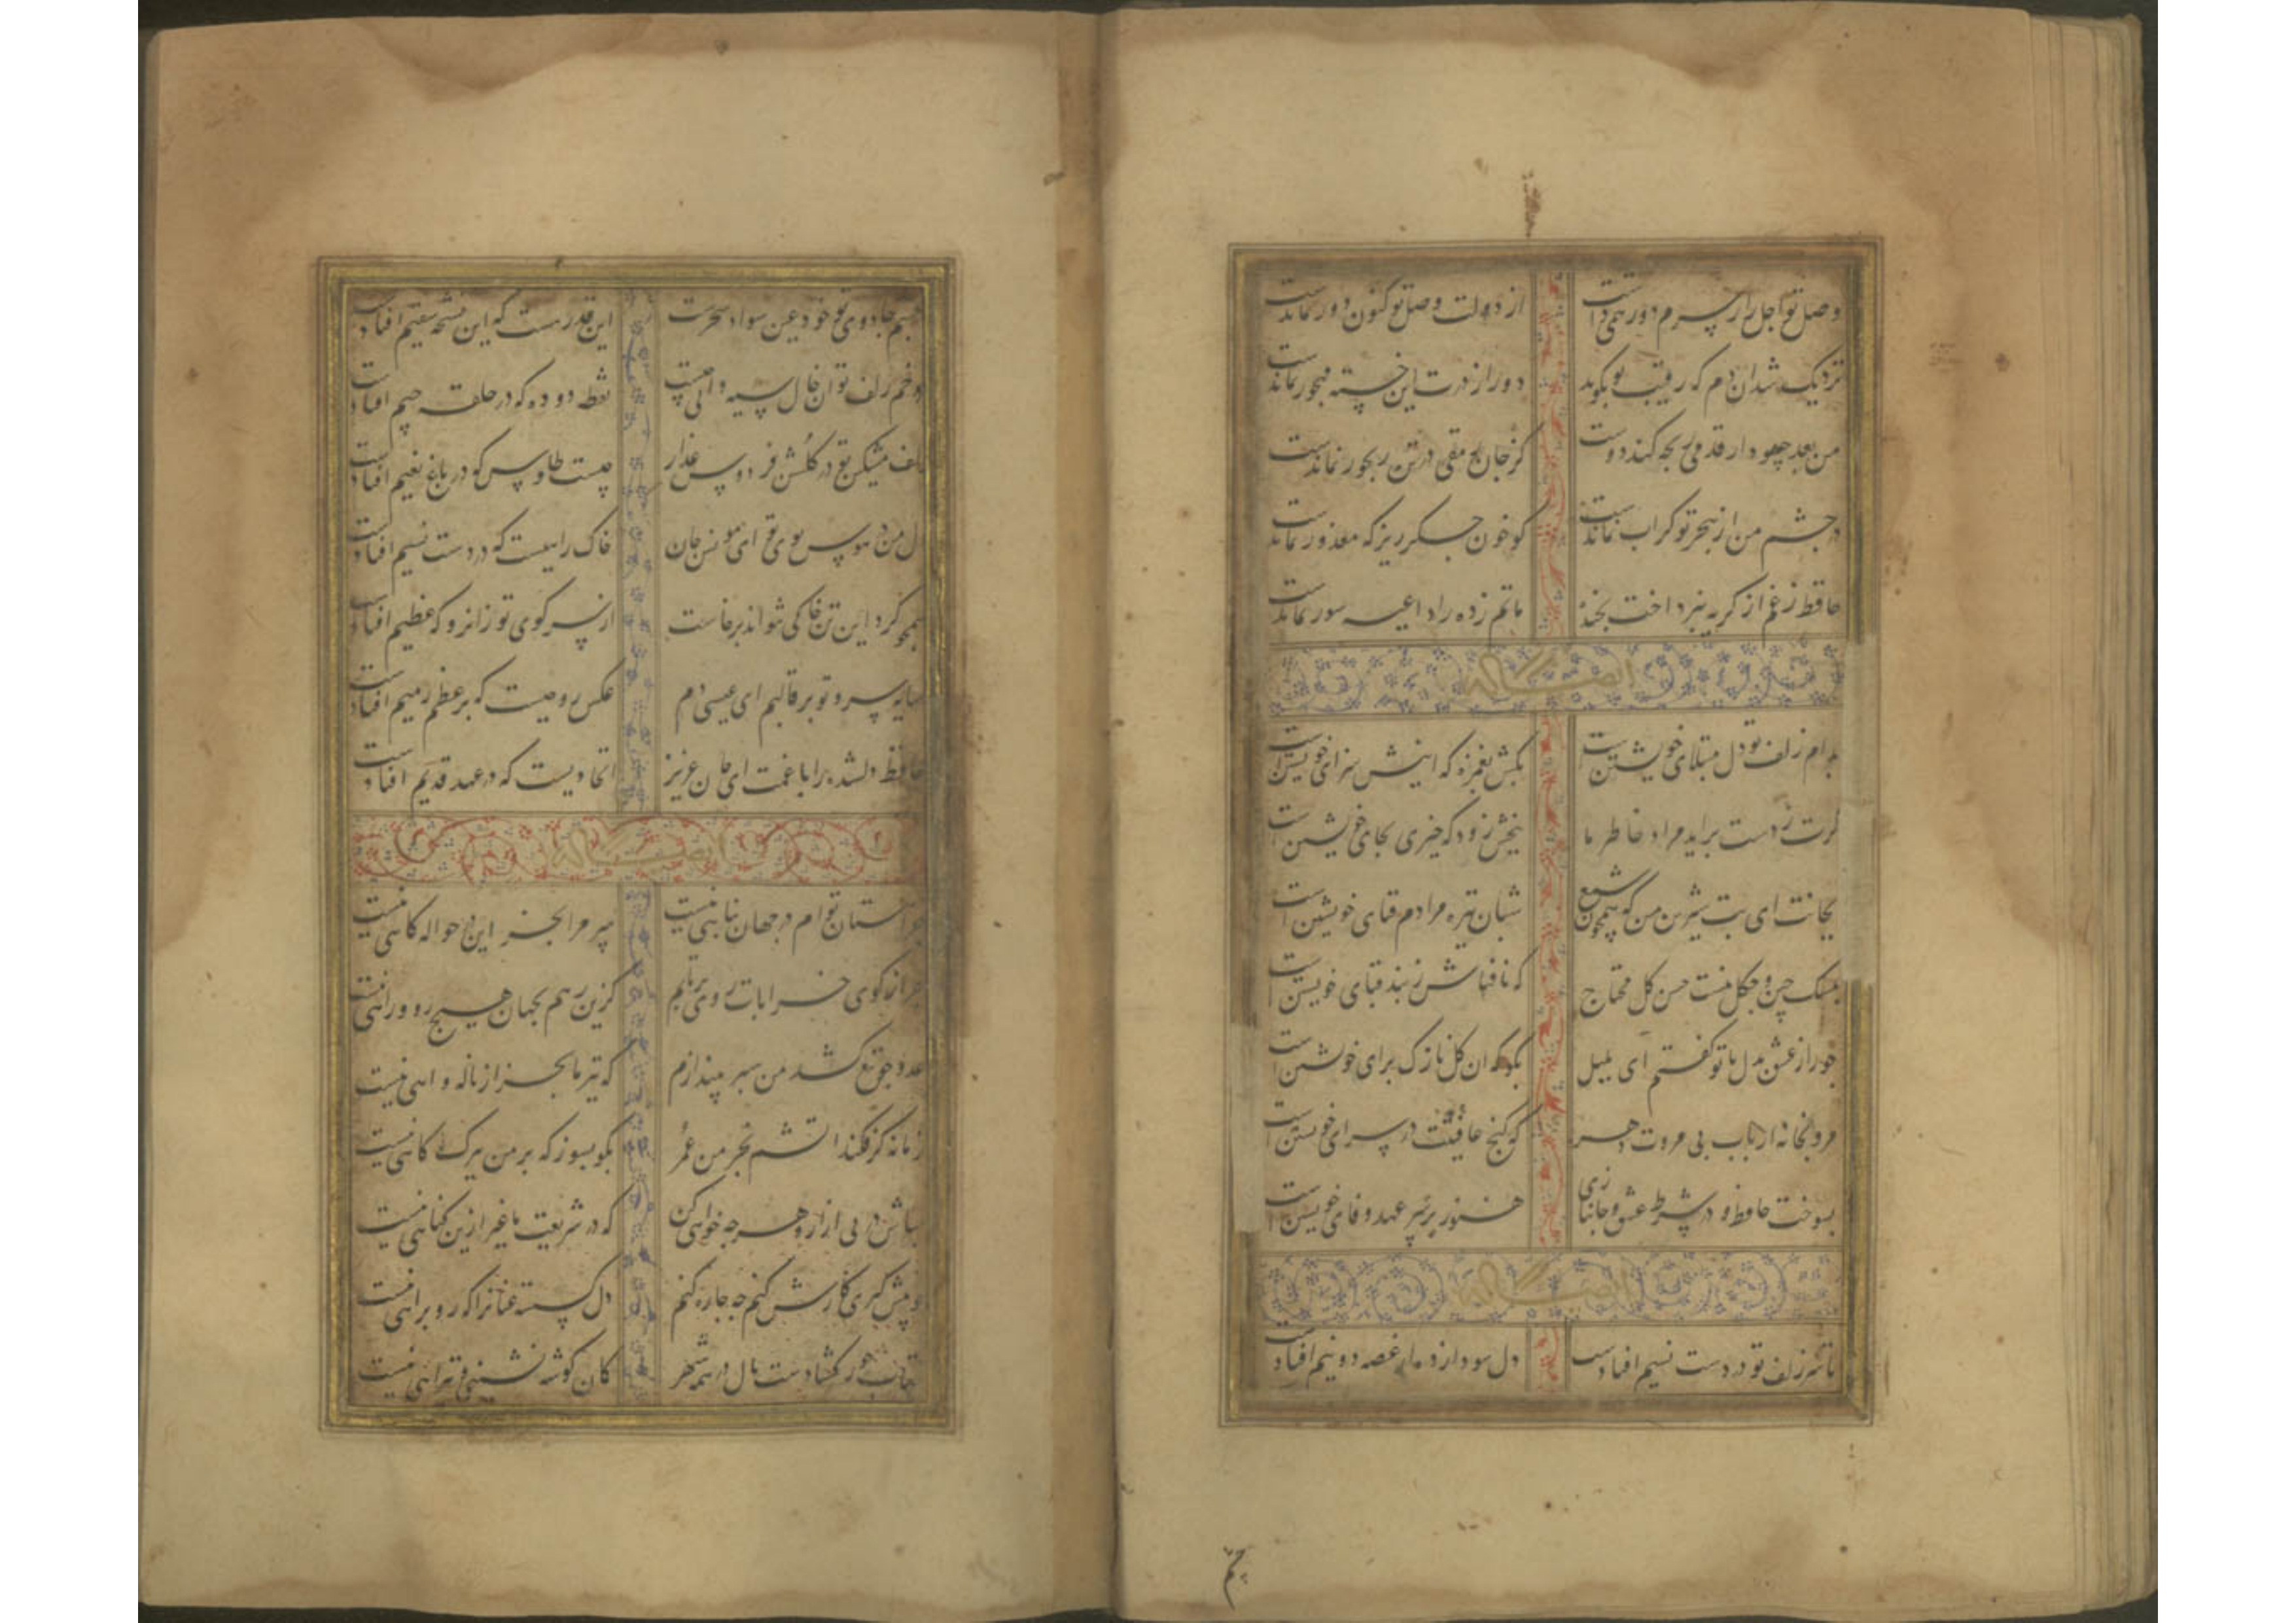 وصل تو اجل را ز سرم دور همی داشت از دولت وصل تو کنون دور نماندست
نزدیک شد آن دم که رقیب تو بگوید دور از درت این خسته مهجور نماندست
من بعد چه سود ار قدمی رنجه کند دوست کز جان رمقی در تن رنجور نماندست
در چشم من از هجر تو گر آب نماندست گو خون جگر ریز که معذور نماندست
حافظ ز غم از گریه نپرداخت بخنده ماتم زده را داعیه سور نماندست
ایضاً له
بدام زلف تو دل مبتلای خویشتنست بکش بغمزه که اینش سزای خویشتنست
گرت ز دست براید مراد خاطر ما ببخش زود که خیری بجای خویشتنست
بجانت ای بت شیرین من که همچون شمع شبان تیره مرادم فنای خویشتنست
بمشک چین و چگل نیست حسن گل محتاج که نافهاش ز بند قبای خویشتنست
چو راز عشق بدل با تو گفتم ای بلبل بگو که ان گل نازک برای خویشتنست
مرو بخانه ارباب بی مروت دهر که گنج عافیتت در سرای خویشتنست
بسوخت حافظ و در شرط عشق و جانبازی هنوز بر سر عهد و وفای خویشتنست
ایضاً له
تا سر زلف تو در دست نسیم افتادست دل سودازده از غصه دو نیم افتادست
چشم
چشم جادوی تو خود عین سواد سحرست این قدر هست که این نسخه سقیم افتادست
در خم زلف تو آن خال سیه دانی چیست نقطه دوده که در حلقه جیم افتادست
زلف مشکین تو در گلشن فردوس عذار چیست طاوس که در باغ نعیم افتادست
دل من در هوس بوی تو ای مونس جان خاک راهیست که در دست نسیم افتادست
همچو گرد این تن خاکی نتواند برخاست از سر کوی تو زانرو که عظیم افتادست
سایه سرو تو بر قالبم ای عیسی دم عکس روحیست که بر عظم رمیم افتادست
حافظ دلشده را با غمت ای جان عزیز اتحادیست که در عهد قدیم افتادست
ایضاً له
جز آستان توام در جهان پناهی نیست سر مرا بجز این در حواله گاهی نیست
چرا ز کوی خرابات روی برتابم کزین رهم بجهان هیچ رو و راهی نیست
عدو چو تیغ کشد من سپر بیندازم که تیر ما بجز از ناله و اهی نیست
زمانه گر فکند اتشم بخرمن عمر بگو بسوز که بر من ببرگ کاهی نیست
مباش در پی ازار و هر چه خواهی کن که در شریعت ما غیر ازین گناهی نیست
دل گسسته عنانرا که رو براهی نیست
عقاب جور گشادست بال در همه شهر کمان گوشه نشینی و تیر اهی نیست